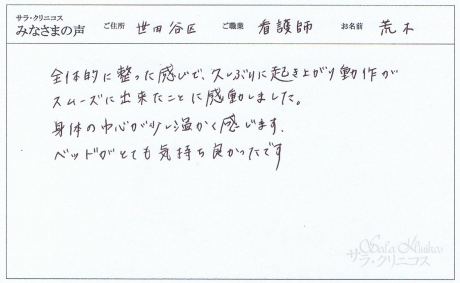 サラ・クリニコス
みなさまの声 ご住所 世田谷区 ご職業 看護師 お名前 荒木
全体的に整った感じで、久しぶりに起き上がり動作が
スムーズに出来たことに感動しました。
身体の中心が少し温かく感じます。
ベッドがとても気持ち良かったです
Sala Klinikos
サラ・クリニコス